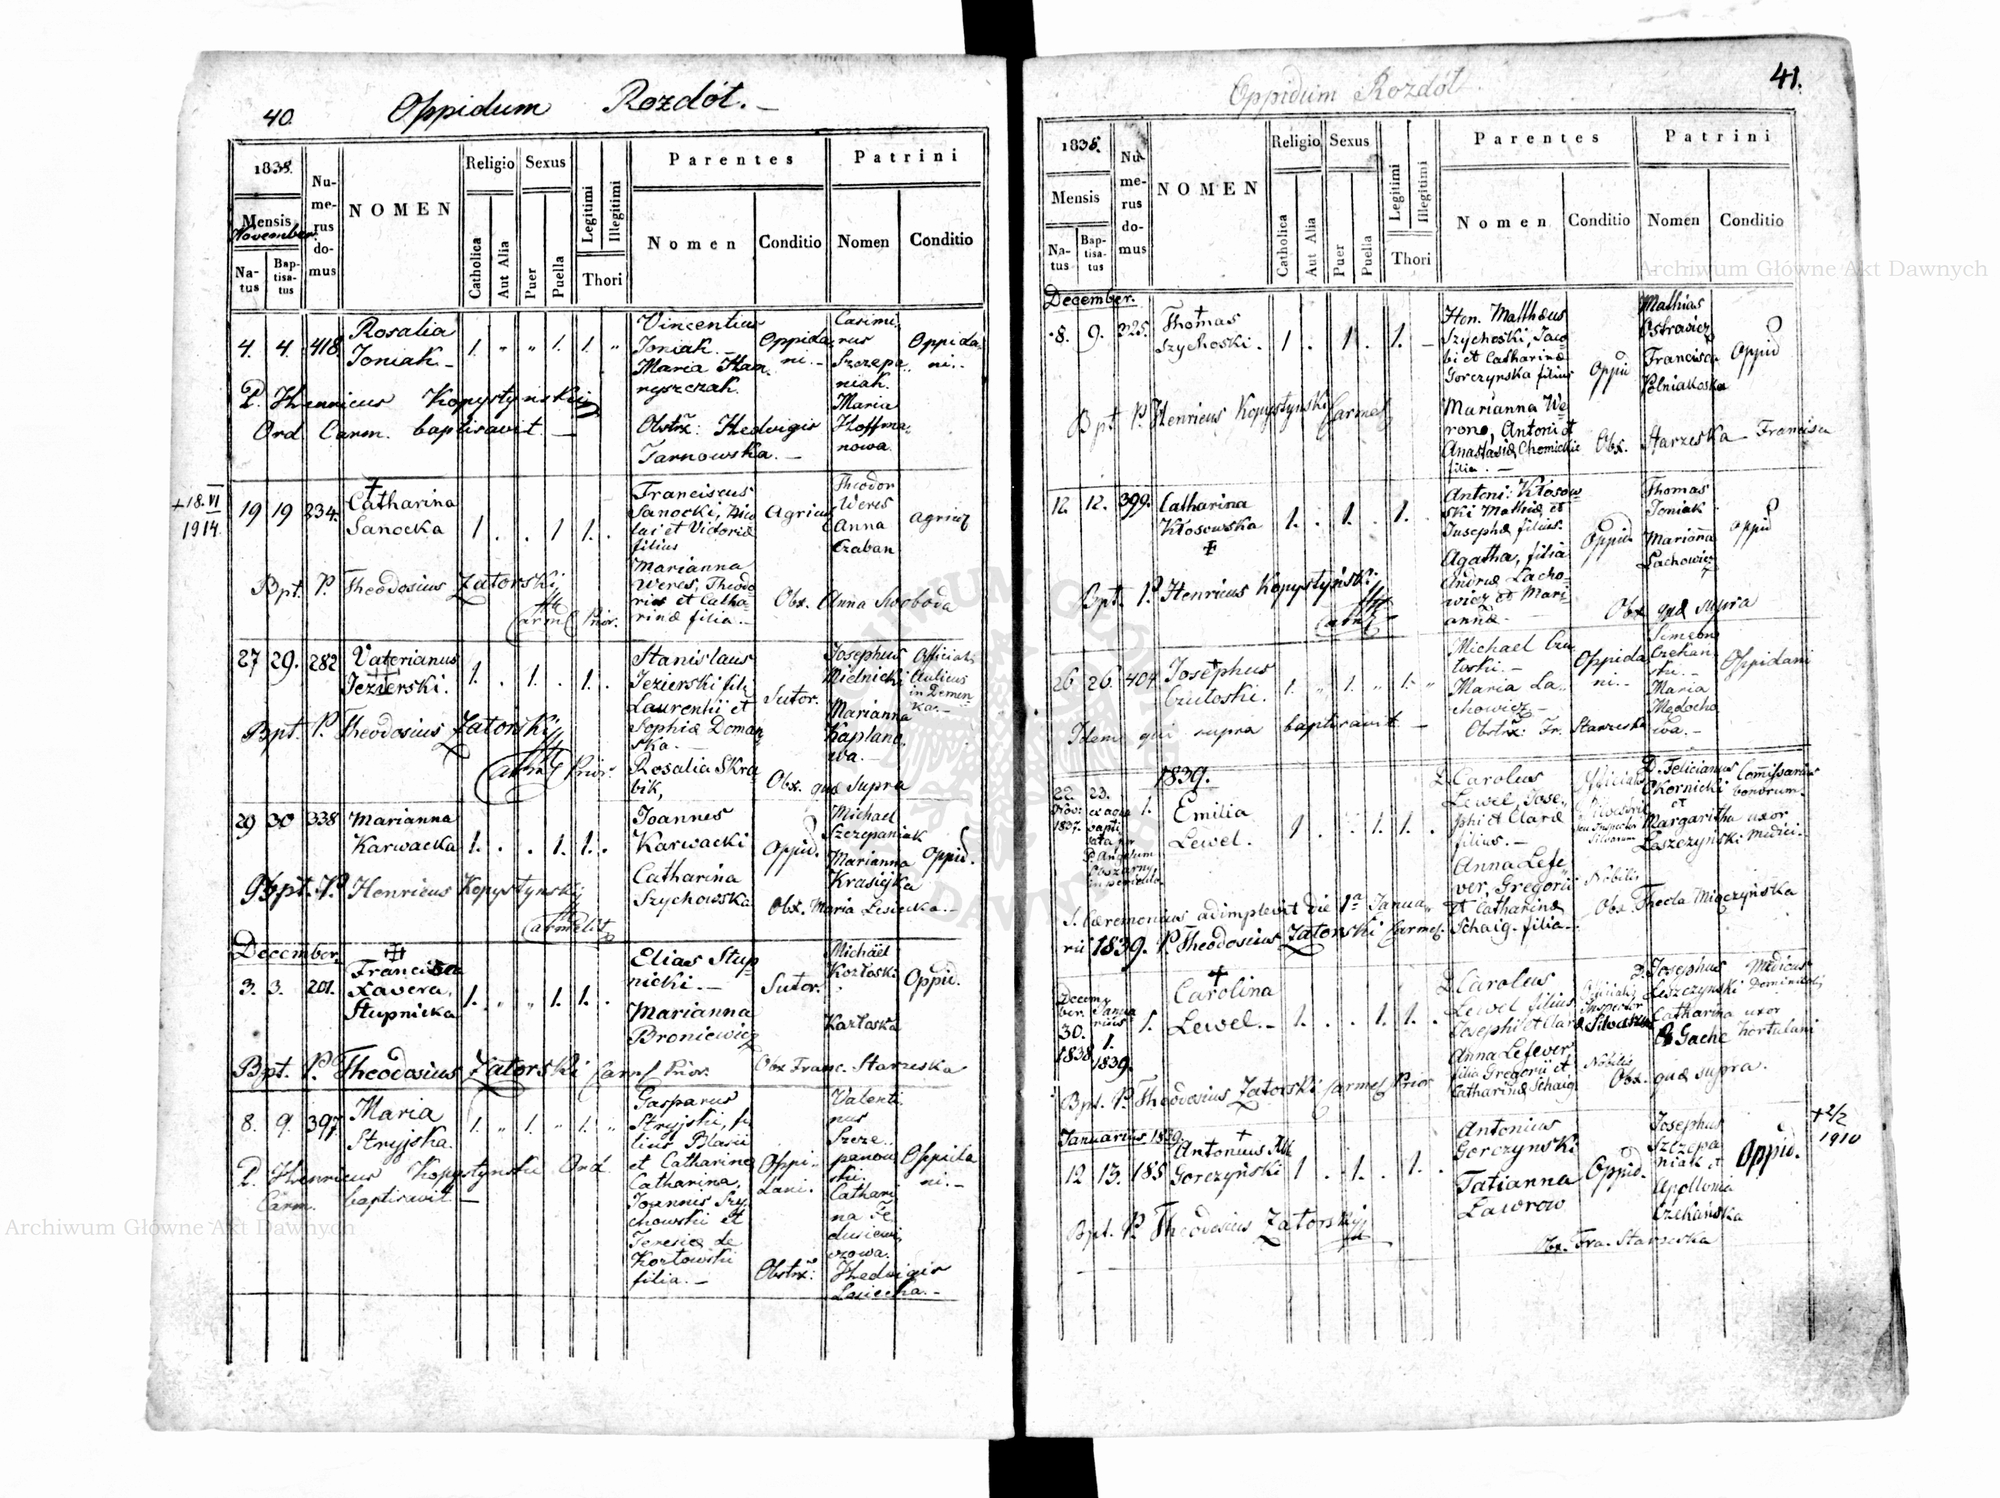 40.
Oppidum Rozdół. —
1838.
Mensis
November
Natus
Baptisatus
Numerus domus
NOMEN
Religio
Catholica
Aut Alia
Sexus
Puer
Puella
Legitimi
Illegitimi
Thori
Parentes
Nomen
Conditio
Patrini
Nomen
Conditio
4. 4. 418.
Rosalia
Joniak. —
1. „ „ 1. 1. „
Vincentius
Joniak. —
Maria Han
ryszczak.
Oppida
ni. —
Casimi
rus
Szczepa
niak.
Maria
Hoffma
nowa.
Oppida
ni. —
P. Henricus Kopystynski
Ord. Carm. baptisavit —
Obstrx: Hedvigis
Tarnowska. —
+ 18. VI
1914.
19 19 234.
Catharina
Sanocka
1. . . 1 1. .
Franciscus
Sanocki, Nico
lai et Victoriæ
filius
Marianna
Weres, Theodo
ris et Catha
rinæ filia. —
Agric
Theodor
Weres
Anna
Czaban
agric
Bpt. P. Theodosius Zatorski
Carml Prior.
Obx. Anna Swoboda
27 29. 282
Valerianus
Jezierski.
1. . 1. . 1. .
Stanislaus
Jezierski fil.
Laurentii et
Sophiæ Doman
ska. —
Rosalia Skra
bik,
Sutor.
Josephus
Mielnicki
Marianna
Kaplano
wa. —
Official
Aulicus
in Demen
ka. —
Bpt. P. Theodosius Zatorski
Carml Prior.
Obx. quæ supra
29 30 338
Marianna
Karwacka
1. . . 1. 1. .
Joannes
Karwacki
Catharina
Szychowska
Oppid.
Michael
Szczepaniak
Marianna
Krasicka
Oppid.
Bpt. P. Henricus Kopystynski
Carmelit
Obx. Maria Lesiecka. —
December.
3. 3. 201.
Francisca
Xavera,
Stupnicka
1. „ „ 1. 1. .
Elias Stup
nicki. —
Marianna
Broniewicz
Sutor.
Michael
Kozłoski
Kozłoska
Oppid.
Bpt. P. Theodosius Zatorski Carml Prior.
Obx Franc. Starzeska
8. 9. 397.
Maria
Stryjska.
1. „ 1. „ 1. „
Gasparus
Stryjski, fi
lius Blasii
et Catharinæ
Catharina,
Joannis Szy
chowski et
Teresiæ de
Kozłowski
filia. —
Oppi
dani.
Valenti
nus
Szcze
panow
ski.
Cathari
na
Oppida
ni. —
P. Henricus Kopystynski Ord.
Carm. baptisavit —
Obstrx:
Hedwigis
Lasiecka. —
41.
Oppidum Rozdół
1838.
Mensis
Natus
Baptisatus
Numerus domus
NOMEN
Religio
Catholica
Aut Alia
Sexus
Puer
Puella
Legitimi
Illegitimi
Thori
Parentes
Nomen
Conditio
Patrini
Nomen
Conditio
December.
8. 9. 325.
Thomas
Szychoski.
1 . 1 . 1. —
Hon. Matthæus
Szychoski, Jaco
bi et Catharinæ
Gorczynska filius
Marianna We
rono, Antoni et
Anastasiæ Chomickie
filia. —
Oppid
Mathias
Ostrowicz
Francisca
Polniakoska
Oppid
Bpt P. Henricus Kopystynski Carmel
Obx. Starzeska Francisca
12. 12. 399.
Catharina
Kłosowska
1. . 1. . 1. .
Antoni: Kłosow
ski Mathiæ et
Josephæ filius.
Agatha, filia
Andreæ Lacho
wicz et Mari
annæ.
Oppid
Thomas
Joniak
Marianna
Lachowicz
Oppid
Bpt. P. Henricus Kopystyński
Carml
Obx quæ supra
26 26. 404
Josephus
Czułoski.
1. „ 1. „ 1. „
Michael Czu
łoski. —
Maria La
chowicz —
Oppida
ni. —
Simeon
Czekan
ski. —
Maria
Mędocho
wa. —
Oppidani
Idem qui supra baptisavit —
Obstrx: Fr. Starzeska
1839.
22.
Nov:
1837.
23.
ex aqua
bapti
sata per
P. Angelum
1.
Emilia
Lewel.
1 . . 1. 1. .
D. Carolus
Lewel, Jose
phi et Claræ
filius. —
Anna Lefe
ver, Gregorii
et Catharinæ
Schaig. filia —
Nobilis
D. Felicianus
Chornicki
et
Margaritha uxor
Leszczynski Medici
Comissarius
bonorum.
S. Cæremonias adimplevit die 1a Janua
rii 1839. P. Theodosius Zatorski Carmel.
Obx. Thecla Mięczyńska
Decem
ber.
30.
1838.
Janua
rius
1.
1839.
1.
Carolina
Lewel. —
1. . . 1. 1. .
D. Carolus
Lewel filius
Josephi et Claræ
Anna Lefever
filia Gregorii et
Catharinæ Schaig
Inspector
Silvarum
Nobilis
D. Josephus
Leszczynski
Catharina uxor
Gache hortulani
Medicus
Dominical.
Bpt. P. Theodosius Zatorski Carmel Prior
Obx. quæ supra.
Januarius 1839
12 13. 185
Antonius
Gorczyński
1 . 1. . 1. .
Antonius
Gorczynski
Tatianna
Ławrow
Oppid.
Josephus
Szczepa
niak et
Apollonia
Czekańska
Oppid.
+ 2/2
1910
Bpt. P. Theodosius Zatorski
Obx. Fra. Starzeska
Archiwum Główne Akt Dawnych
Archiwum Główne Akt Dawnych